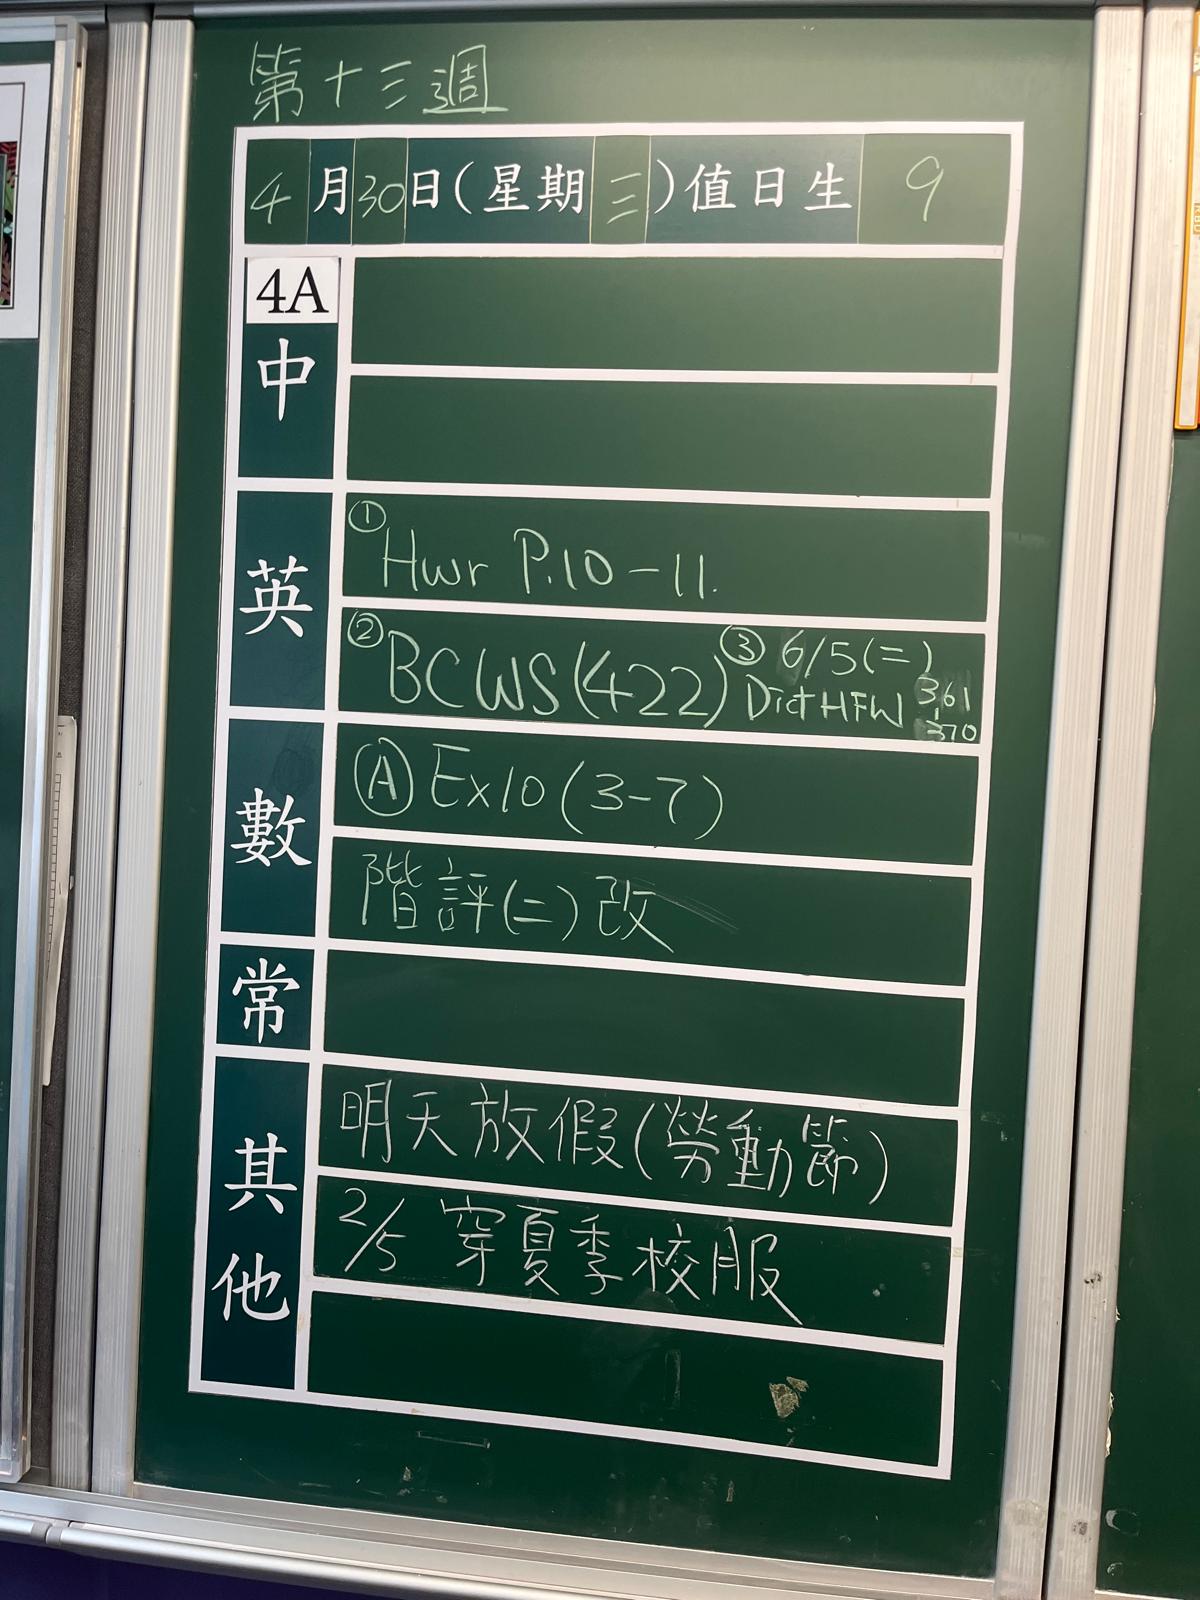 第十三週
4月30日(星期三)值日生 9
4A
中
英
① Hwr P.10-11.
② BCWS(422) ③ 6/5(二)
Dict HFW 361
370
數
Ⓐ Ex10(3-7)
階評(二)改
常
其他
明天放假(勞動節)
2/5 穿夏季校服